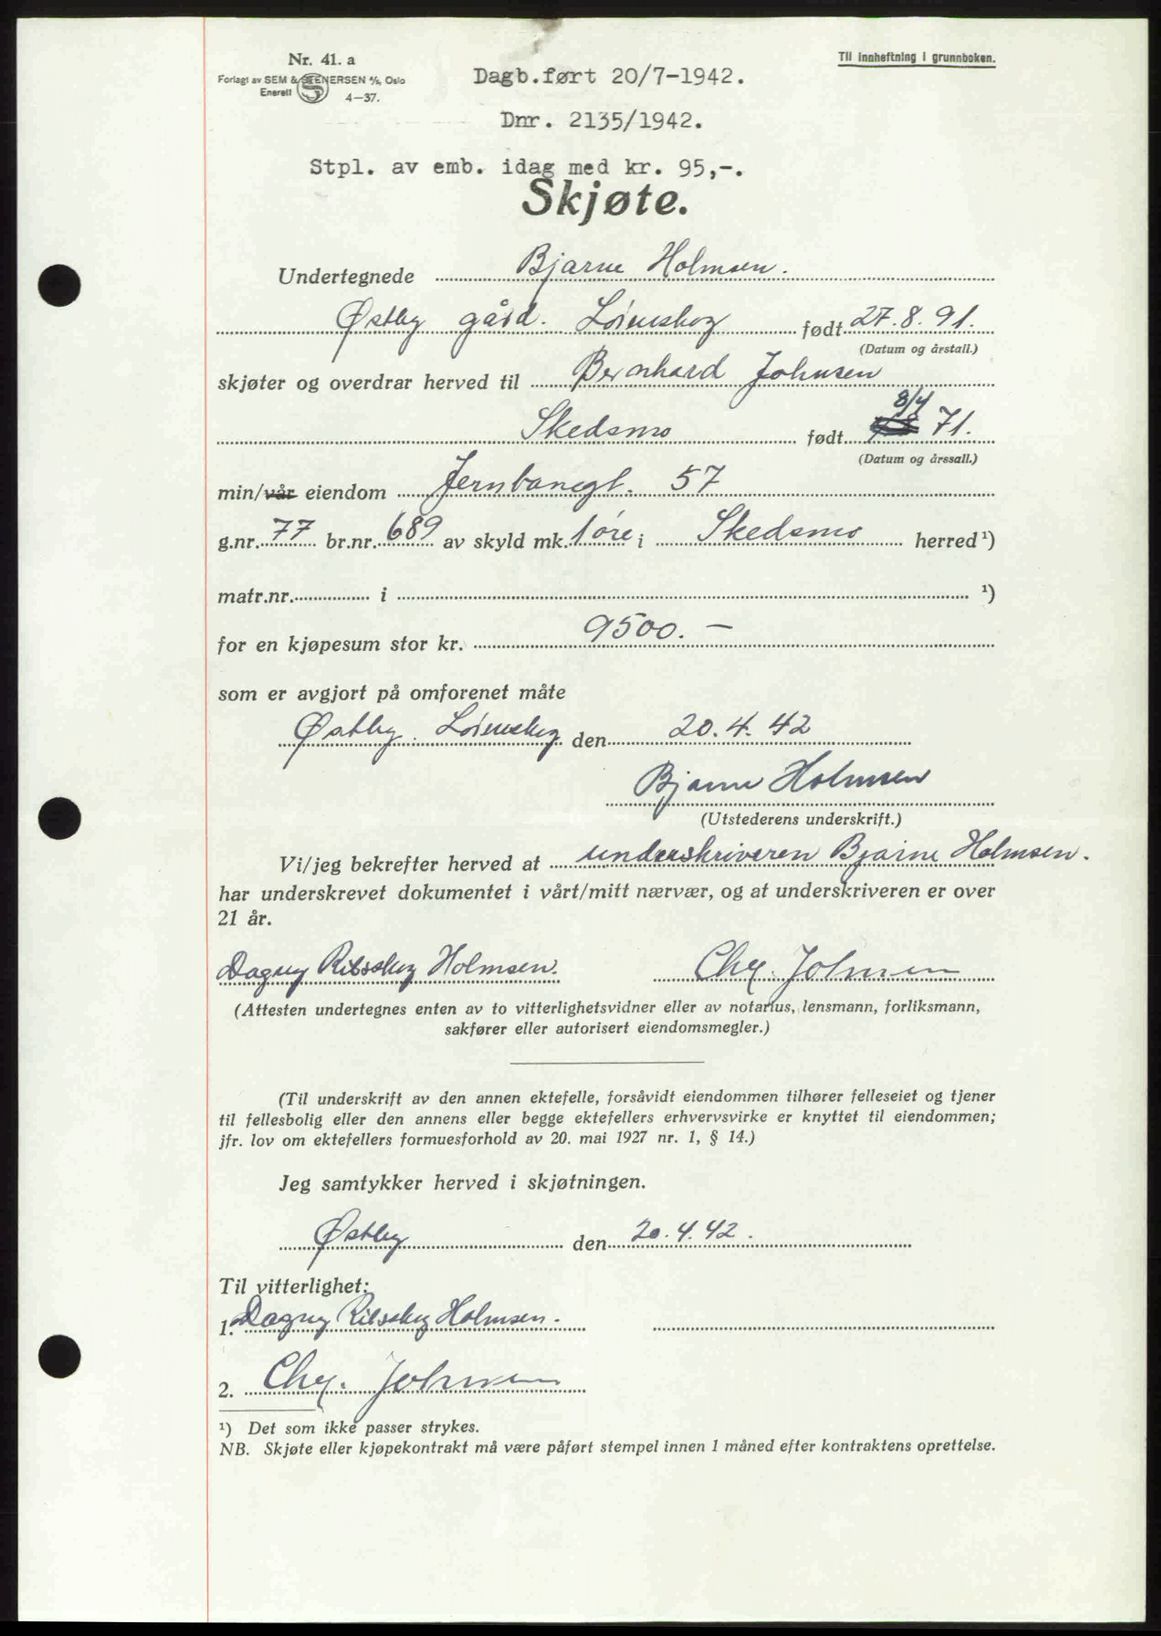 Nr. 41. a
Forlagt av SEM & STENERSEN A/S, Oslo
Enerett
4—37.
Til innheftning i grunnboken.
Dagb.ført 20/7-1942.
Dnr. 2135/1942.
Stpl. av emb. idag med kr. 95,-.
Skjøte.
Undertegnede Bjarne Holmsen.
Østby gård. Lørenskog født 27.8.91.
(Datum og årstall.)
skjøter og overdrar herved til Bernhard Johnsen
8/4
Skedsmo født 71.
(Datum og årssall.)
min/vår eiendom Jernbanegt. 57
g.nr. 77 br.nr. 689 av skyld mk. 1 øre i Skedsmo herred ¹)
matr.nr. i ¹)
for en kjøpesum stor kr. 9500. —
som er avgjort på omforenet måte
Østby. Lørenskog den 20.4.42
Bjarne Holmsen
(Utstederens underskrift.)
Vi/jeg bekrefter herved at underskriveren Bjarne Holmsen.
har underskrevet dokumentet i vårt/mitt nærvær, og at underskriveren er over
21 år.
Dagny Holmsen. Chr. Johnsen
(Attesten undertegnes enten av to vitterlighetsvidner eller av notarius, lensmann, forliksmann,
sakfører eller autorisert eiendomsmegler.)
(Til underskrift av den annen ektefelle, forsåvidt eiendommen tilhører felleseiet og tjener
til fellesbolig eller den annens eller begge ektefellers erhvervsvirke er knyttet til eiendommen;
jfr. lov om ektefellers formuesforhold av 20. mai 1927 nr. 1, § 14.)
Jeg samtykker herved i skjøtningen.
Østby den 20.4.42.
Til vitterlighet:
1. Dagny Holmsen.
2. Chr. Johnsen
¹) Det som ikke passer strykes.
NB. Skjøte eller kjøpekontrakt må være påført stempel innen 1 måned efter kontraktens oprettelse.